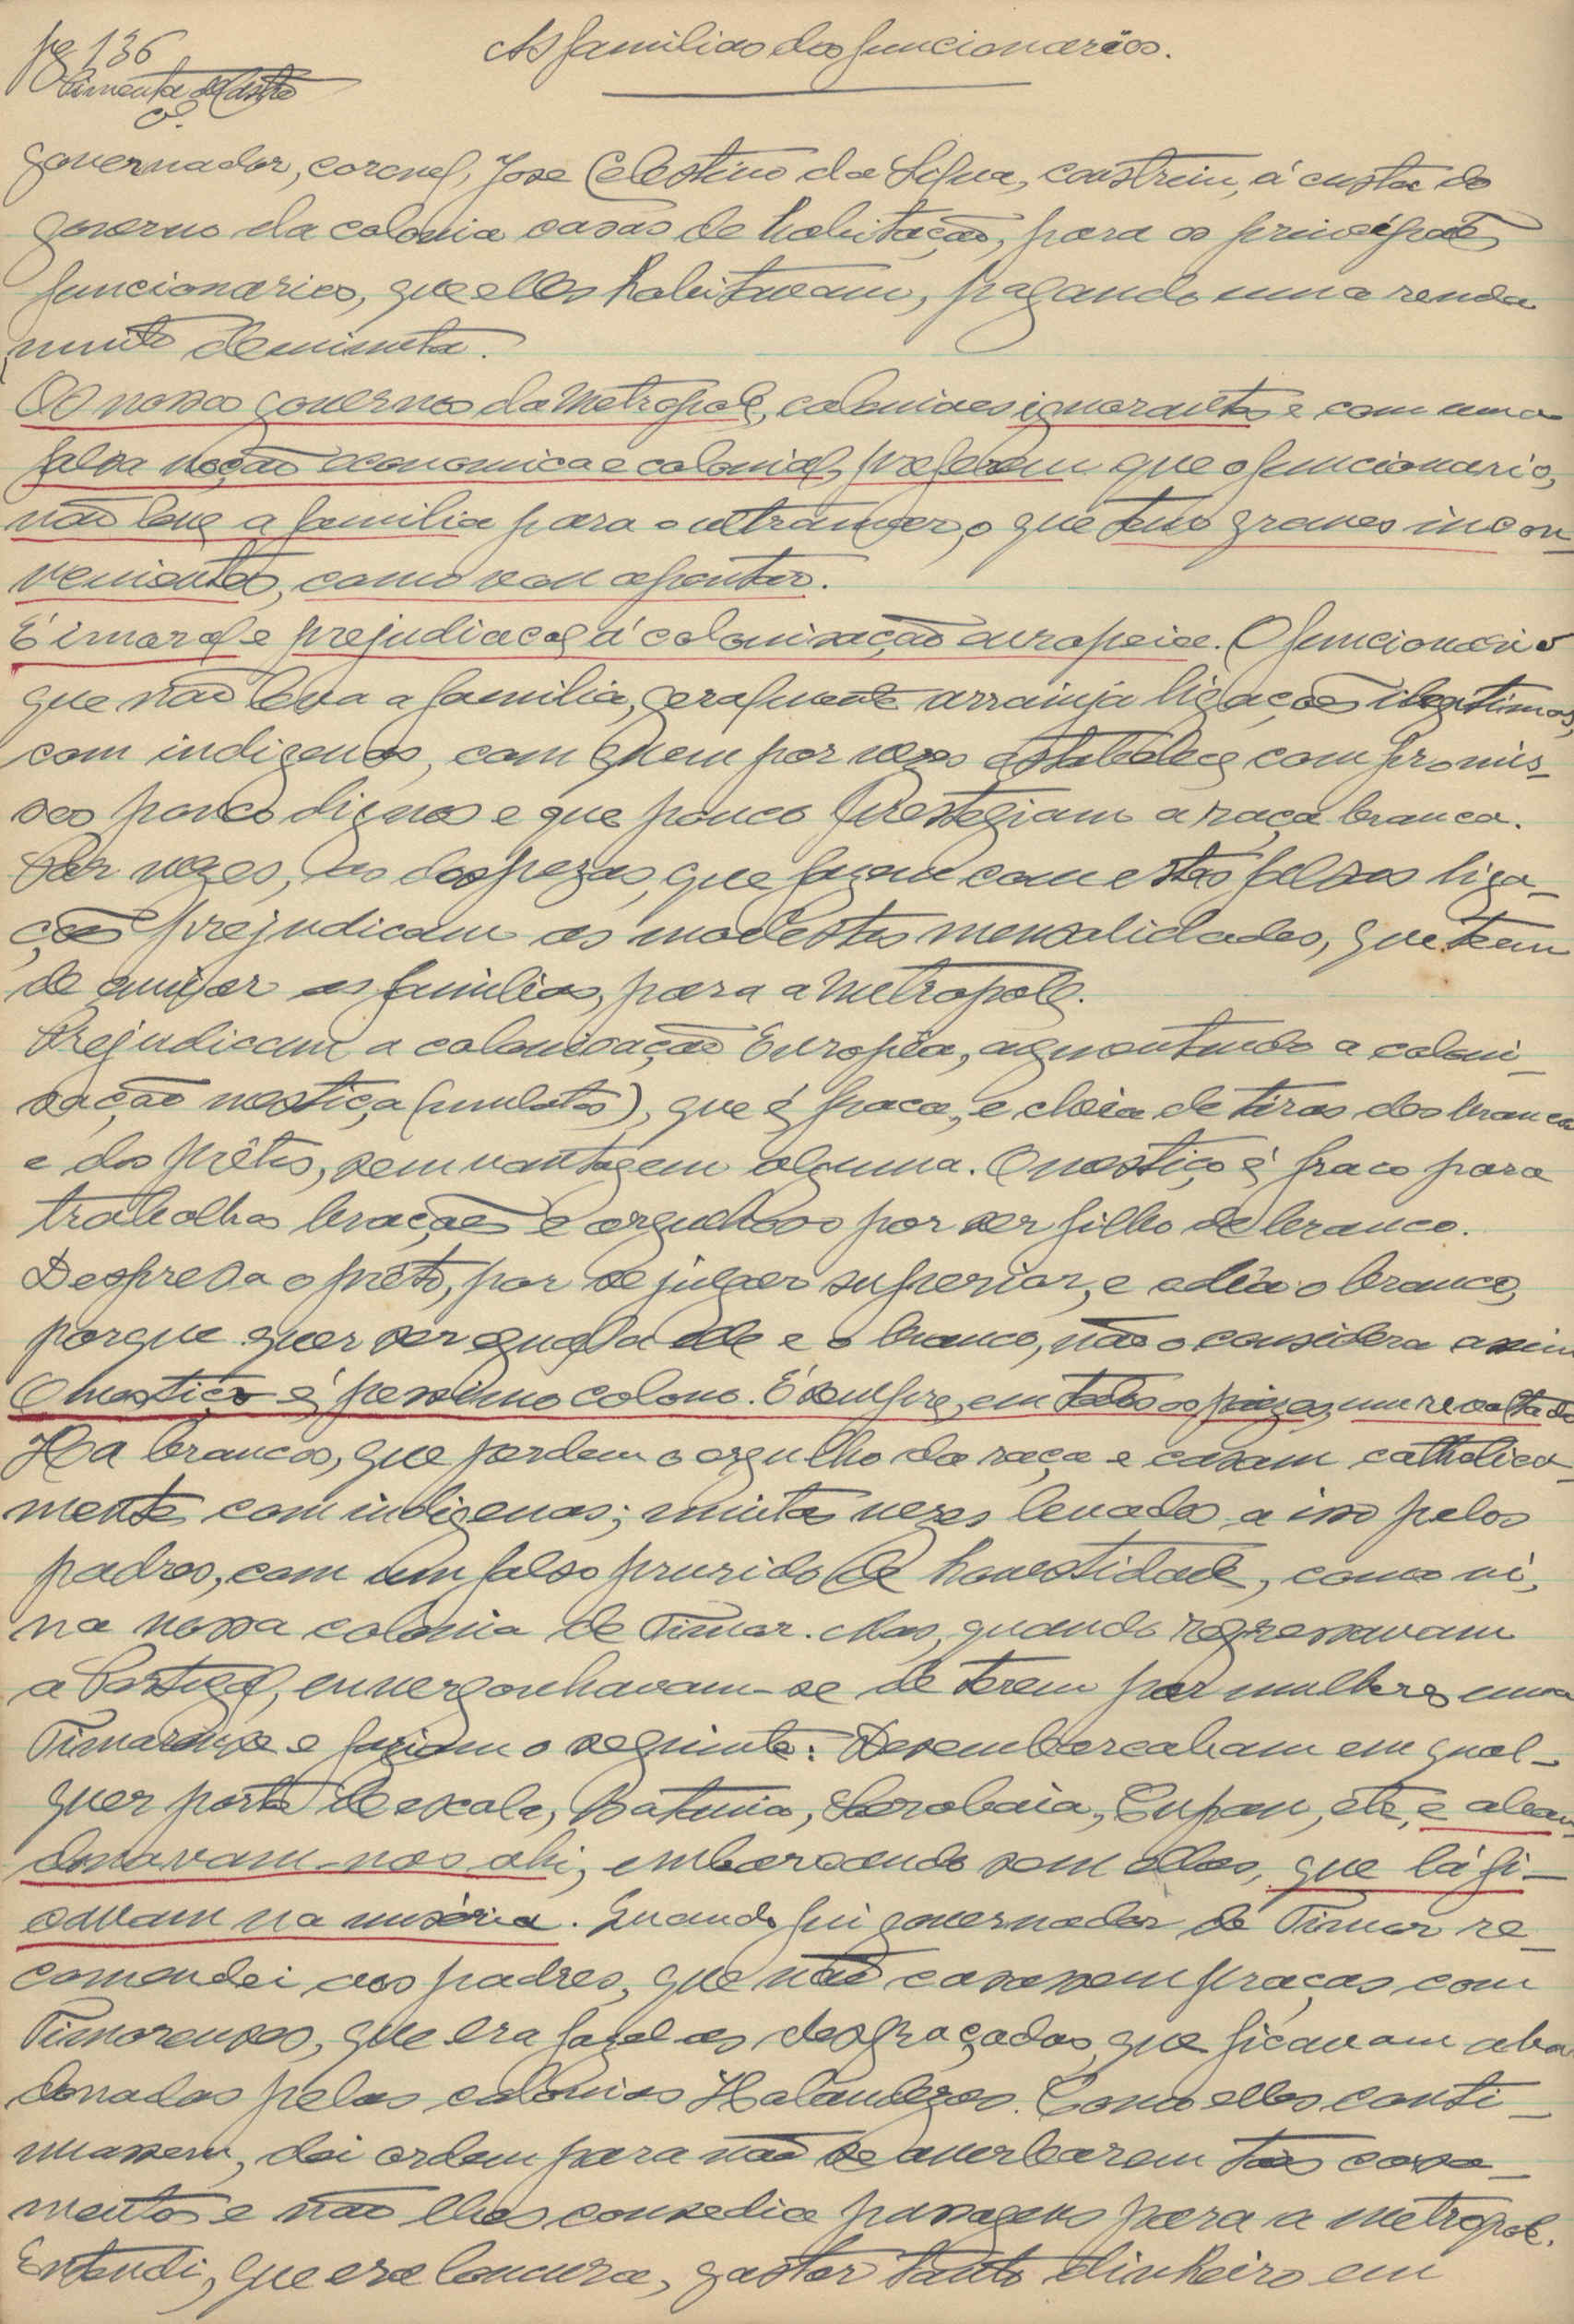 As familias dos funcionarios.
pg 136
Pimenta de Castro
governador, coronel, Jose Celestino da Silva, construiu, á custa do
governo da colonia casas de habitação, para os principaes
funcionarios, que elles habitavam, pagando uma renda
muito deminuta.
Os nossos governos da Metropole, coloniaes ignorantes e com uma
falsa noção economica e colonial, preferem que o funcionario,
não leve a familia para o ultramar, o que tem graves incon-
venientes, como vou apontar.
É imoral e prejudiacal á colonisação europeia. O funcionario
que não leva a familia, geralmente arrainja ligações ilegitimas,
com indigenas, com quem por vezes establelece compromis-
sos pouco dignos e que pouco prestegiam a raça branca.
Por vezes, as despezas, que fazem com estas falsas liga-
ções prejudicam as modestas mensalidades, que teem
de enviar as familias, para a Metropole.
Prejudicam a colonisação Européa, augmentando a coloni-
sação mestiça (mulatos), que é fraca, e cheia de tiras dos brancos
e dos prêtos, sem vantagem alguma. O mestiço é fraco para
trabalhos braçaes e orgulhoso por ser filho de branco.
Despresa o prêto, por se julgar superior, e odeia o branco,
porque quer ser egual a ele e o branco, não o considera assim
O mestiço é pessimo colono. É sempre, em todos os paizes, um revoltado
Ha brancos, que perdem o orgulho da raça e casam catholica-
mente com indigenas; muitas vezes levados a isso pelos
padres, com um falso prurido de honestidade, como vi,
na nossa colonia de Timor. Mas, quando regressavam
a Portugal, envergonhavam-se de terem por mulheres uma
Timorense e faziam o seguinte: Desembarcabam em qual-
quer porto de escala, Batavia, Sorabaia, Cupan, etc, e aban-
donavam-nas ahi, embarcando sem ellas, que lá fi-
cavam na miséria. Quando fui governador de Timor re-
comendei aos padres, que não casassem praças com
Timorenses, que era fazel as desgraçadas, que ficavam aban
donadas pelas colonias Holandezas. Como elles conti-
nuassem, dei ordem para não se averbarem tais casa-
mentos e não lhes consedia passagens para a metropole.
Entendi, que era loucura, gastar tanto dinheiro em